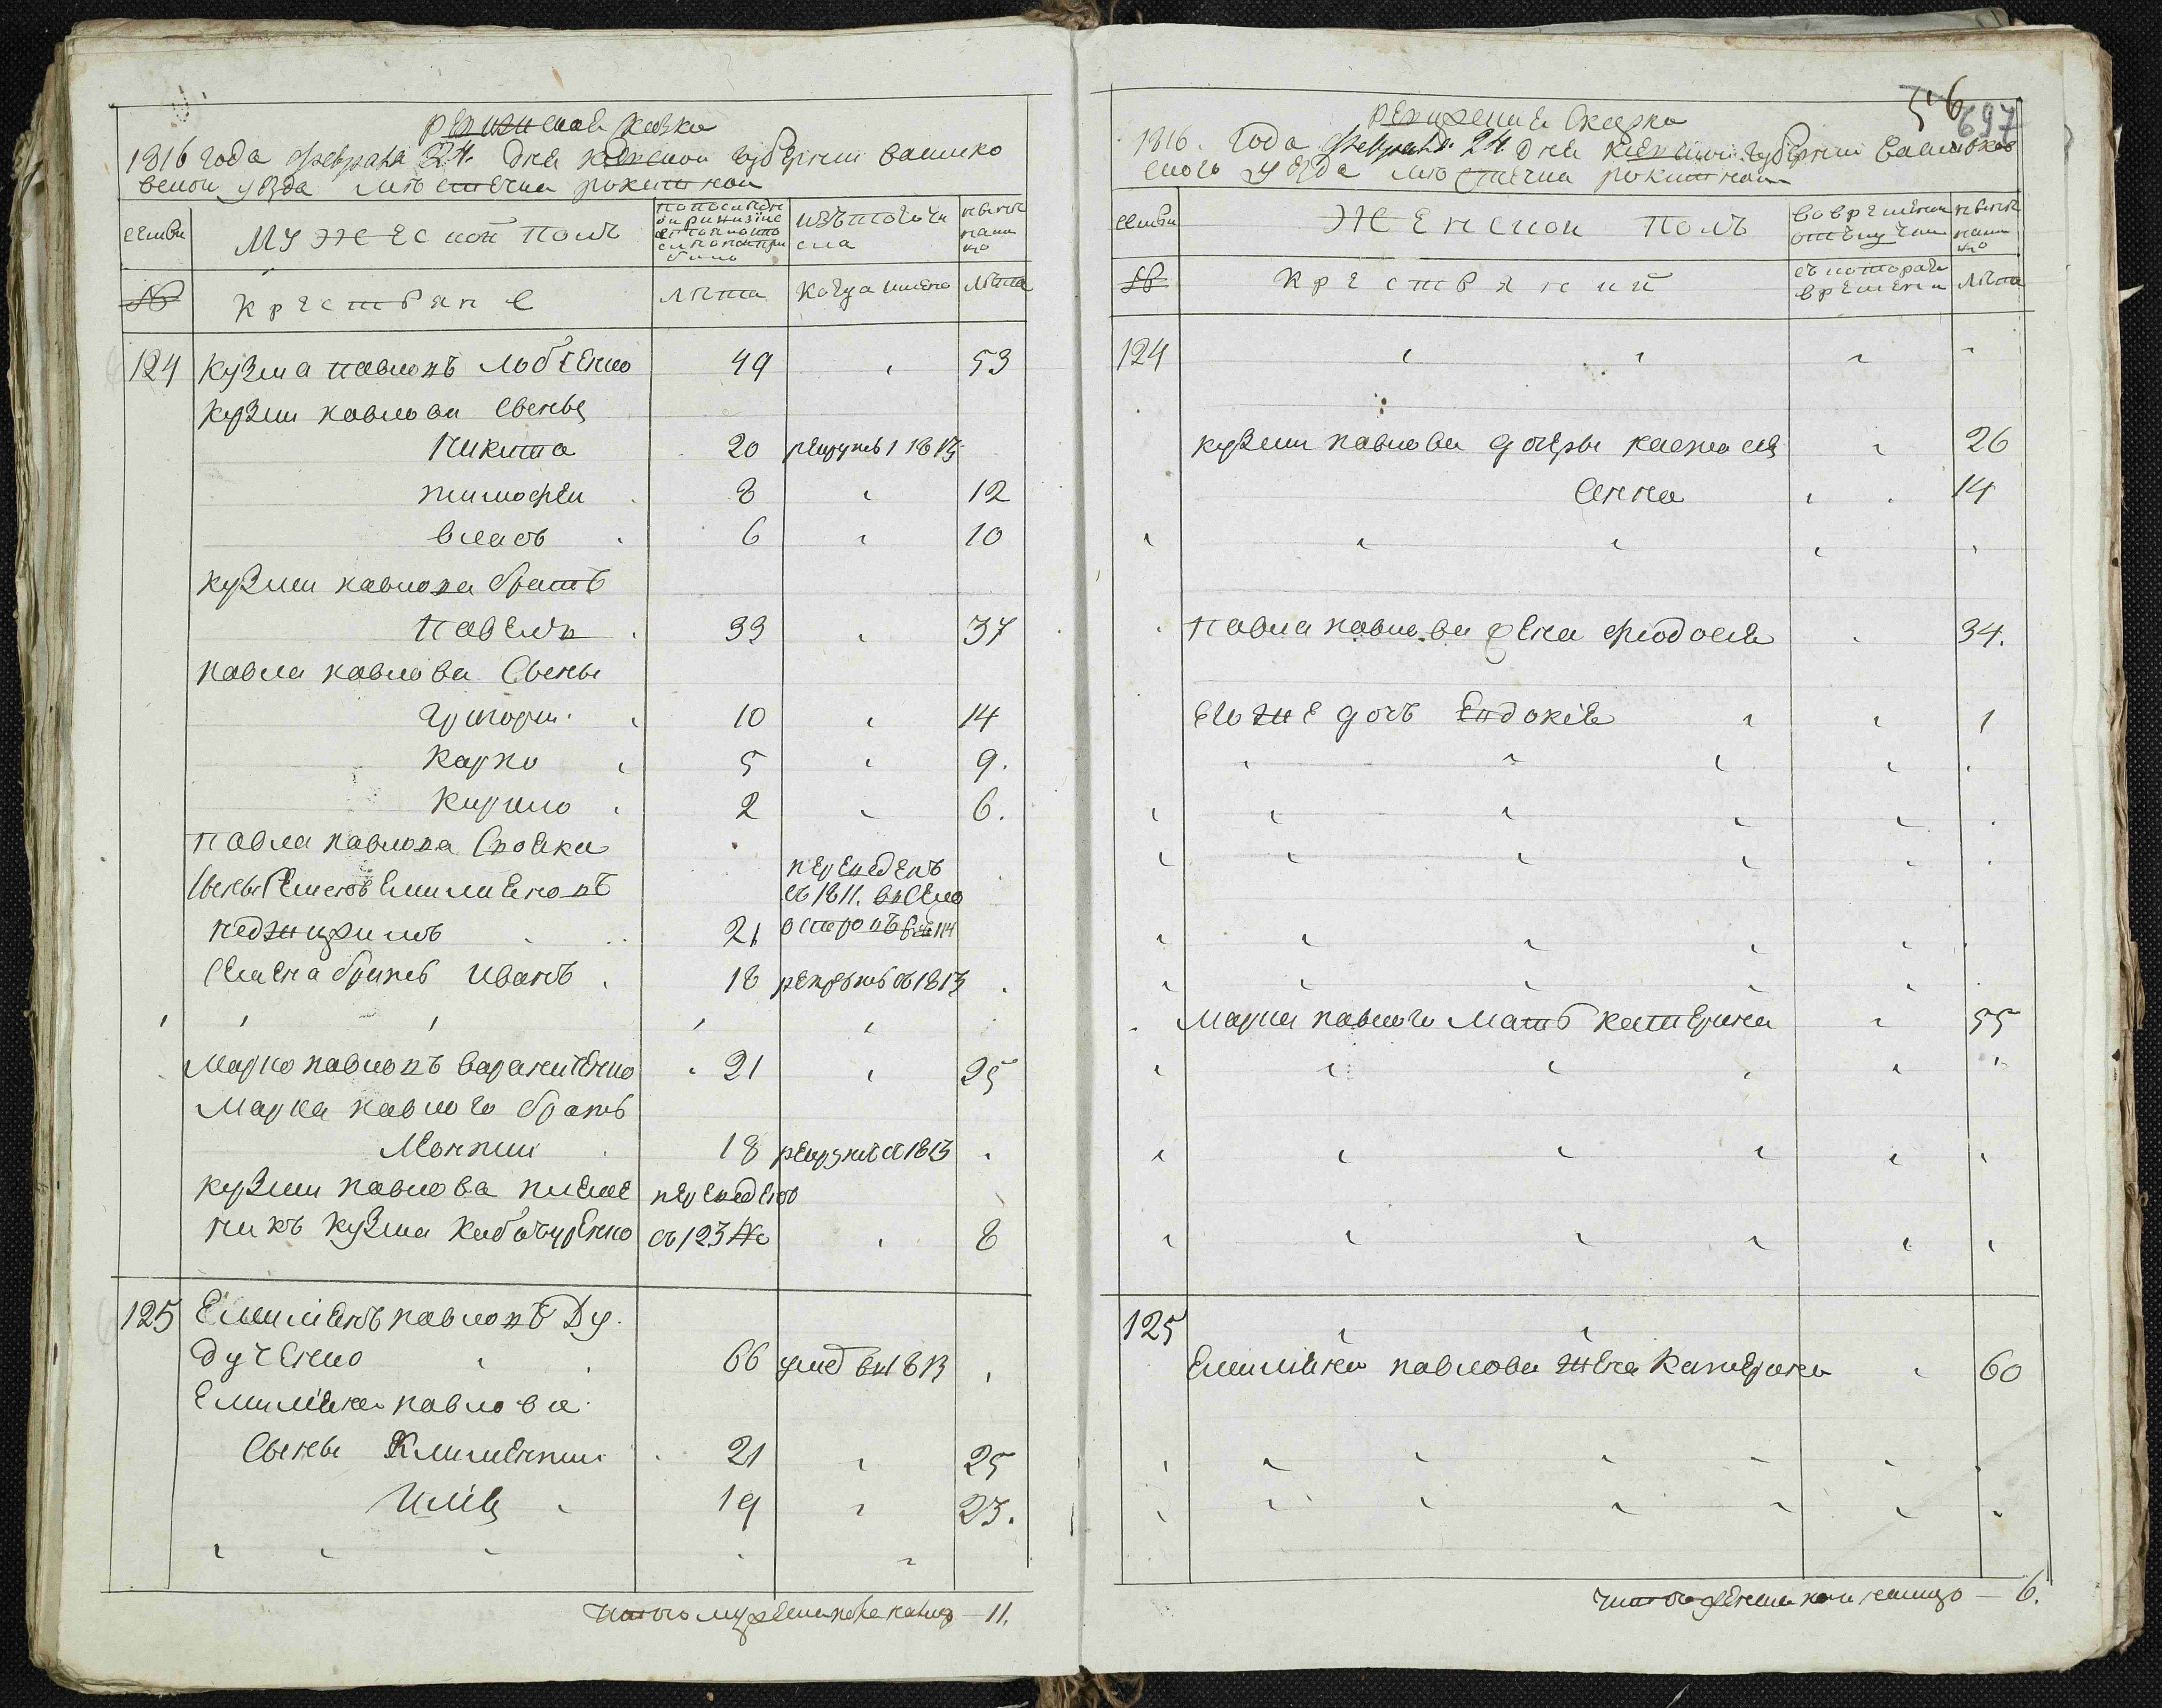 ревизская сказка
1816 года февраля 24 дня киевской губернии василко
вской уезда местечка рокитной
семьи
мужеской полъ
изъ того чи
сла
ныне
на ли
цо
№
крестьяне
лета
когда имено
лета
124 Кузма павловъ 49 53
Кузми павлова сыновья
Никита 20 рекрутъ 1813
тимофей 8 12
власъ 6 10
кузми павлова братъ
павелъ 33 37
павла павлова сыновья
григорий 10 14
Карпо 5 9.
Кирило 2 6.
павла павлова
сыновья Семенъ Емилиановъ
переведенъ
въ 1811. в село
21 островъ
Семена братъ Иванъ 18 рекрутъ въ 1813
Марко павловъ 21 25
Марка павлового братъ
18 рекрутъ въ 1813
кузми павлова племе
никъ кузма
переведенъ
съ 123 № 8
125 Емилианъ павловъ Ду
дученко 66 умеръ в 1813
Емилиана павлова
сыновья Климентий 21 25
Илія 19 23.
Итого мужеска пола на лицо — 11.
546
697
ревизская сказка
1816. года февраля 24 дня киевской губернии василков
ского уезда местечка рокитной
семьи
женской полъ
во временной
отлучке
ныне
на ли
цо
№
крестьяне
съ которого
времени
лета
124
кузми павлова дочери 26
Анна 14
павла павлова жена феодосия 34.
его же дочь Евдокія 1
Марка павлового мать катерина 55
125
Емилиана павлова жена Катерина 60
Итого женска пола на лицо — 6.